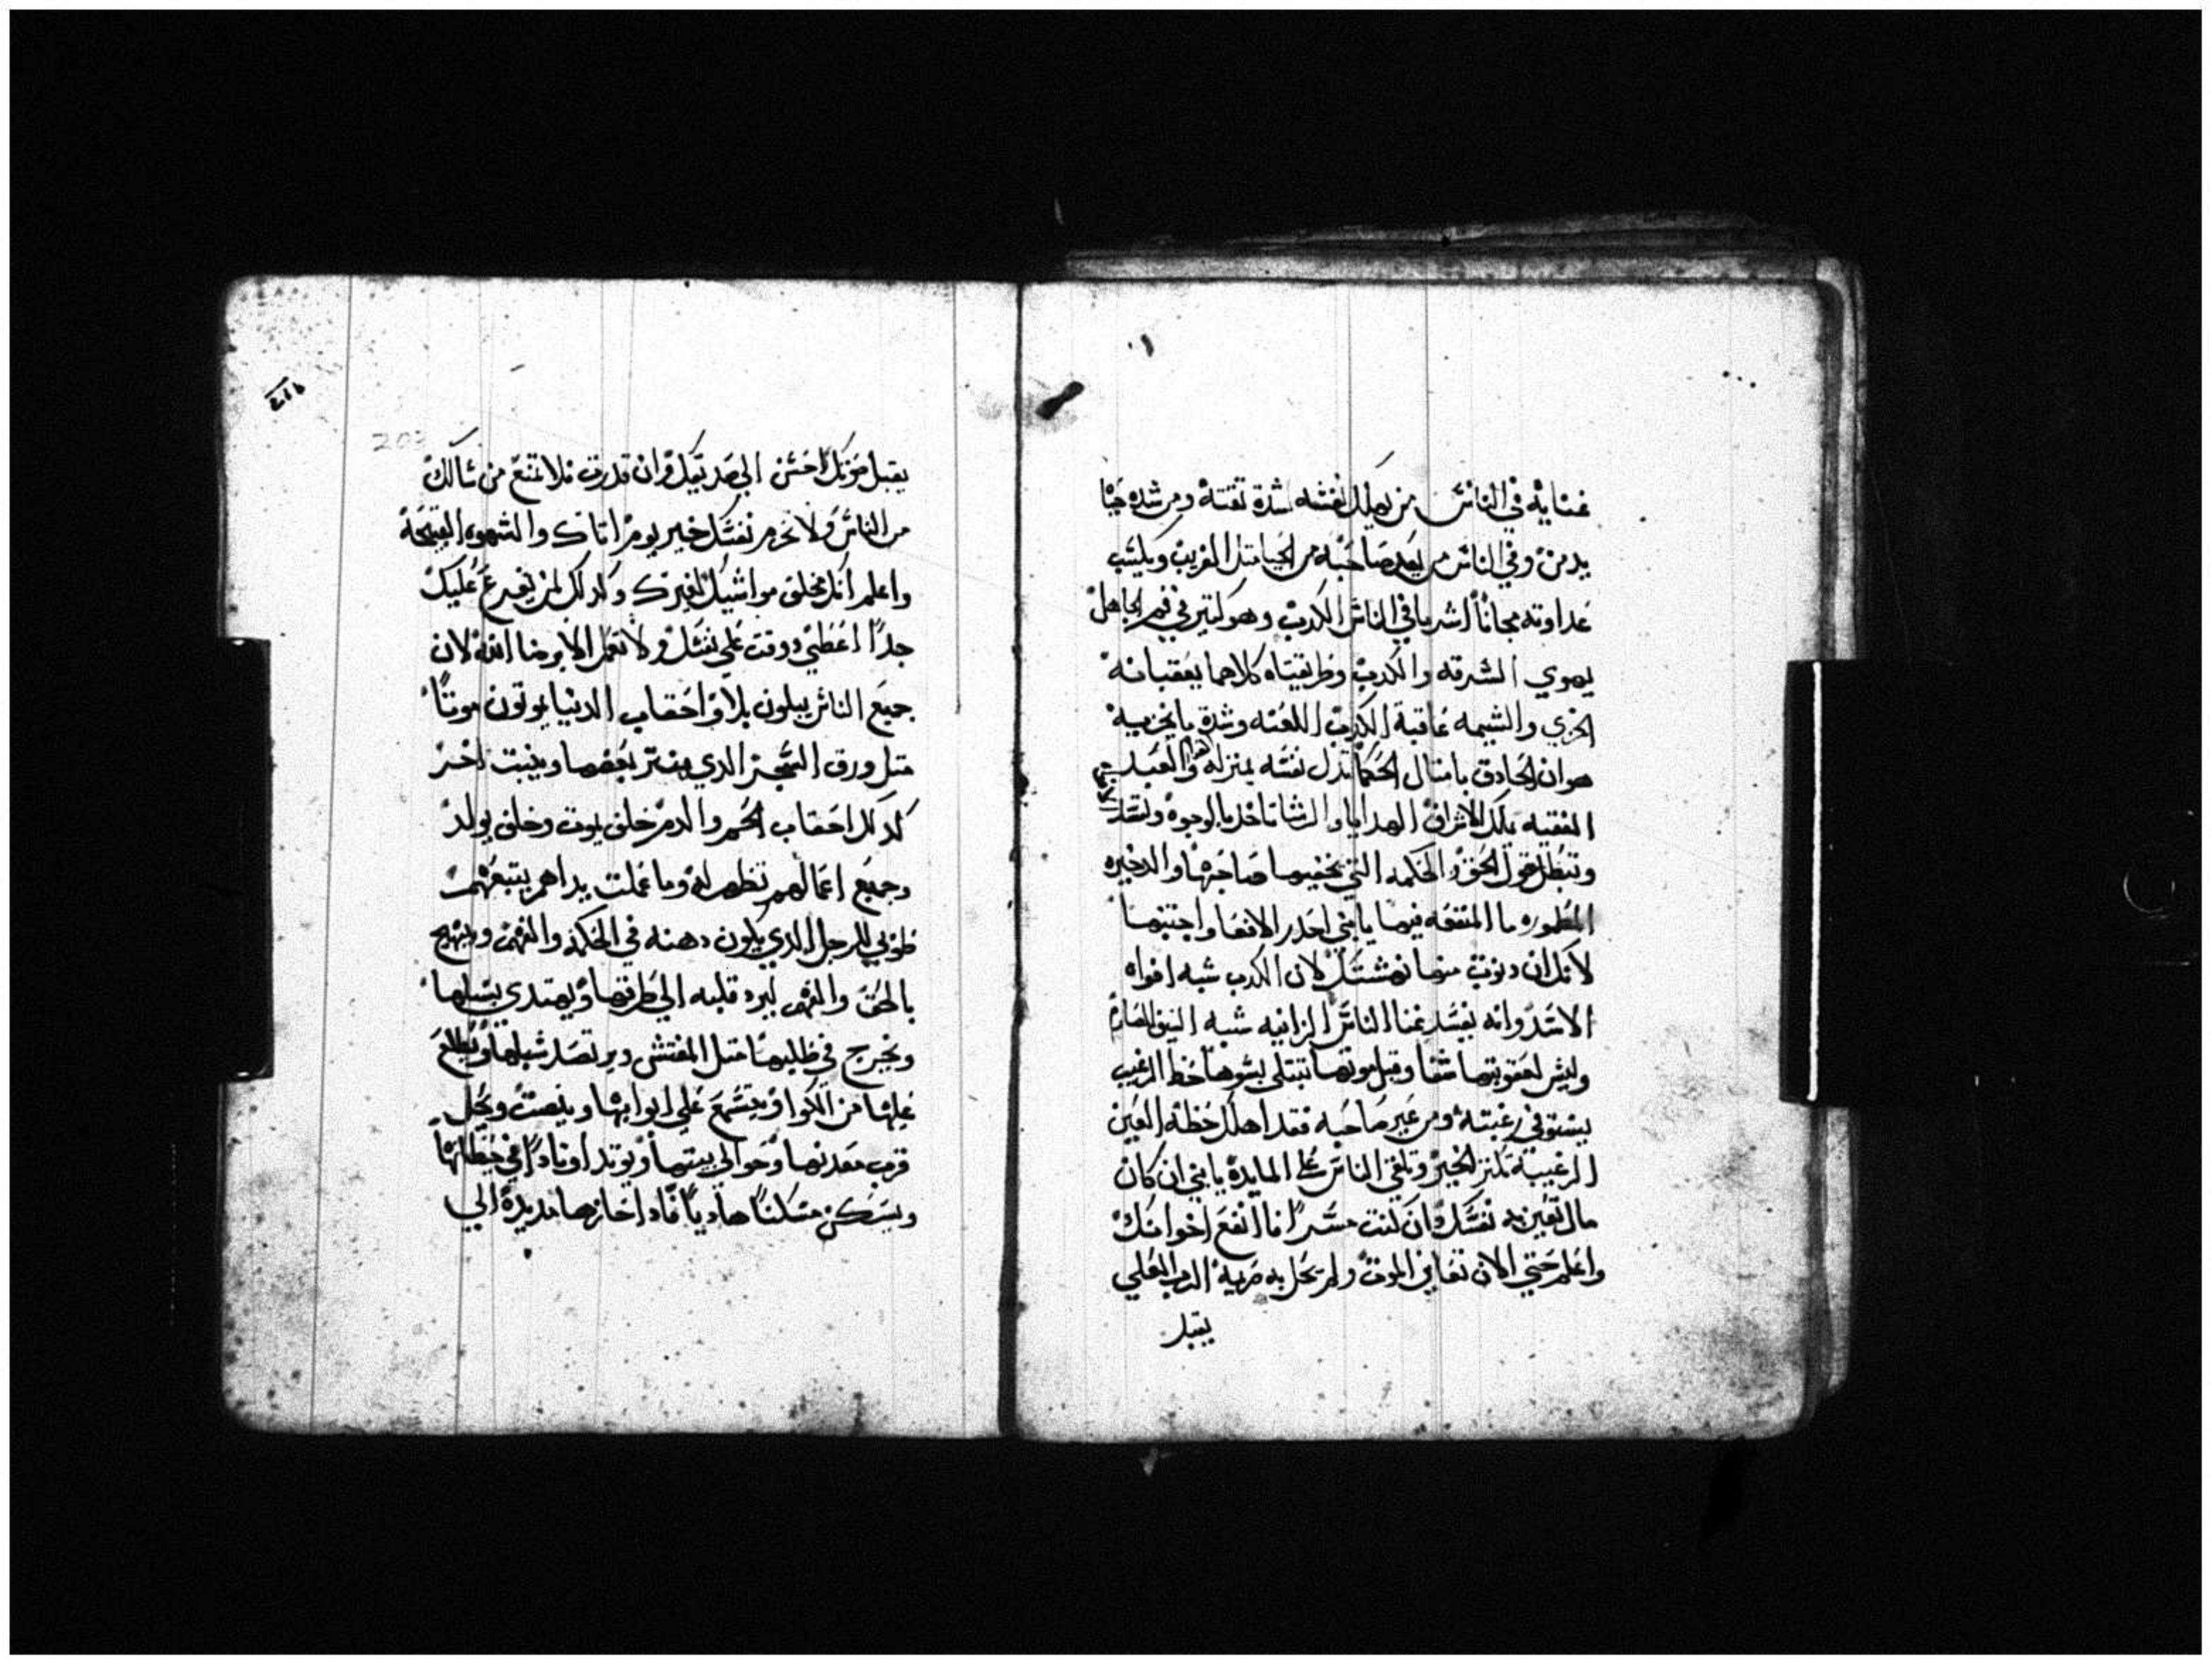 عنايه في الناس من يهلك نفسه شدة تقته ومن شده حيا
يدمن وفي الناس من يعد صاحبه من الحيا مثل القريب ويكسب
عداوته مجاناً الشر ما في الناس الكدب وهو كتير في فم الجاهل
يهوي السرقه والكدب وطريقتاه كلاهما يعقبانه
الخزي والشيمه عاقبة الكدب اللعنه وشدة ما يخزيه
هوان الحادق بامثال الحكما تدل نفسه بمنزله هوا والعبد
الفقيه يملك الاشراف الهدايا والرشا تاخد بالوجوه وتسد
وتبطل قول الحق والحكمه التي يخفيها صاحبها والدخيره
المطموره ما المنفعه فيها يا بني احدر الافعا واجتنبها
لانك ان دنوت منها نهشتك لان الكدب شبه افواه
الاسد وانه يفسد عنا الناس الزانيه شبه السيف الصارم
وليس لعقوبتها شفا وقبل موتها تبتلي بسوها خط الرغيب
يستوفي رغبته ومن عير صاحبه فقد اهلك حظه العين
الرغيبة تكتر الخير وتلقي الناس على المايدة يا بني ان كان
مال تعين به نفسك وان كنت مستراً فاانفع اخوانك
واعلم حتي الان تعاين الموت ولم يحل به مريه الدي المعلي
يقبل
203
يقبل حزنك احسن الي صديقك وان قدرت فلا تمنع من سالك
من الناس ولا تحرم نفسك خير يوم اتاك والشهوه القبيحة
واعلم انك مخلق مواشيك لغيرك وكدلك لمن يقرع عليك
جداً اعطي ووقت علي نفسك ولا تعمل الا برضا الله لان
جميع الناس يبلون بلاً واحقاب الدنيا يموتون موتاً
متل ورق الشجر الدي ينتر بعضها وينبت اخر
كدلك احقاب الحم والدم خلق يموت وخلق يولد
وجميع اعمالهم تظهر له وما عملت يداهم يتبعهم
طوبي للرجل الدي يكون دهنه في الحكمة والفهم وينهج
بالحق والفهم ليرد قلبه الي طرقها ويهتدي بسبلها
ويخرج في طلبها متل المفتش ويرتصد سبلها ويطلع
عليها من الكوا ويتسمع علي ابوابها وينصت ويحل
قرب معدنها وحوالي بيتها ويوتد اوتاداً في حيطانها
ويسكن مسكناً هادياً فاد اخازها مديدة الي